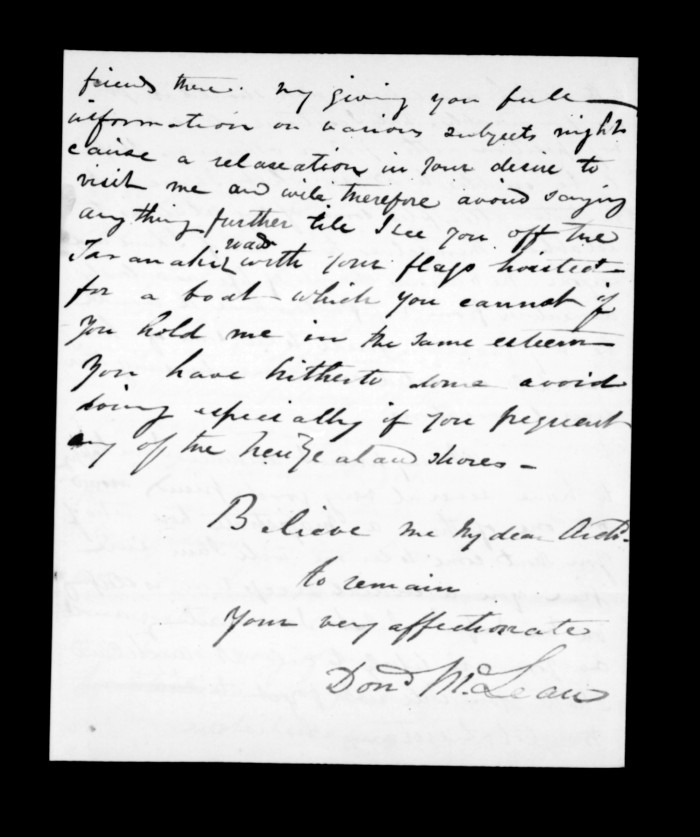 friends there. my giving you full
information on various subjects might
cause a relaxation in your desire to
visit me and will therefore avoid saying
any thing further till I see you off the
Taranaki road with your flags hoisted
for a boat which you cannot if
you hold me in the same esteem
you have hitherto done avoid
doing especially if you frequent
any of the New Zealand shores -
Believe me My dear Archd.
to remain
Your very affectionate
Dond McLean